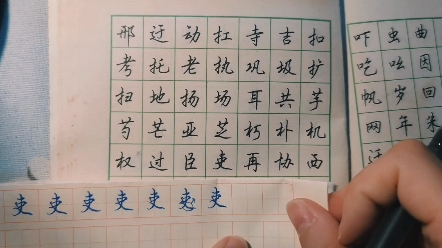 邢迂动扛寺吉扣
考托老执巩圾扩
扫地扬场耳共芋
芍芒亚芝朽朴机
权过臣吏再协西
吏吏吏吏吏吏吏
吓虫曲
吃吆因
帆岁回
网年朱